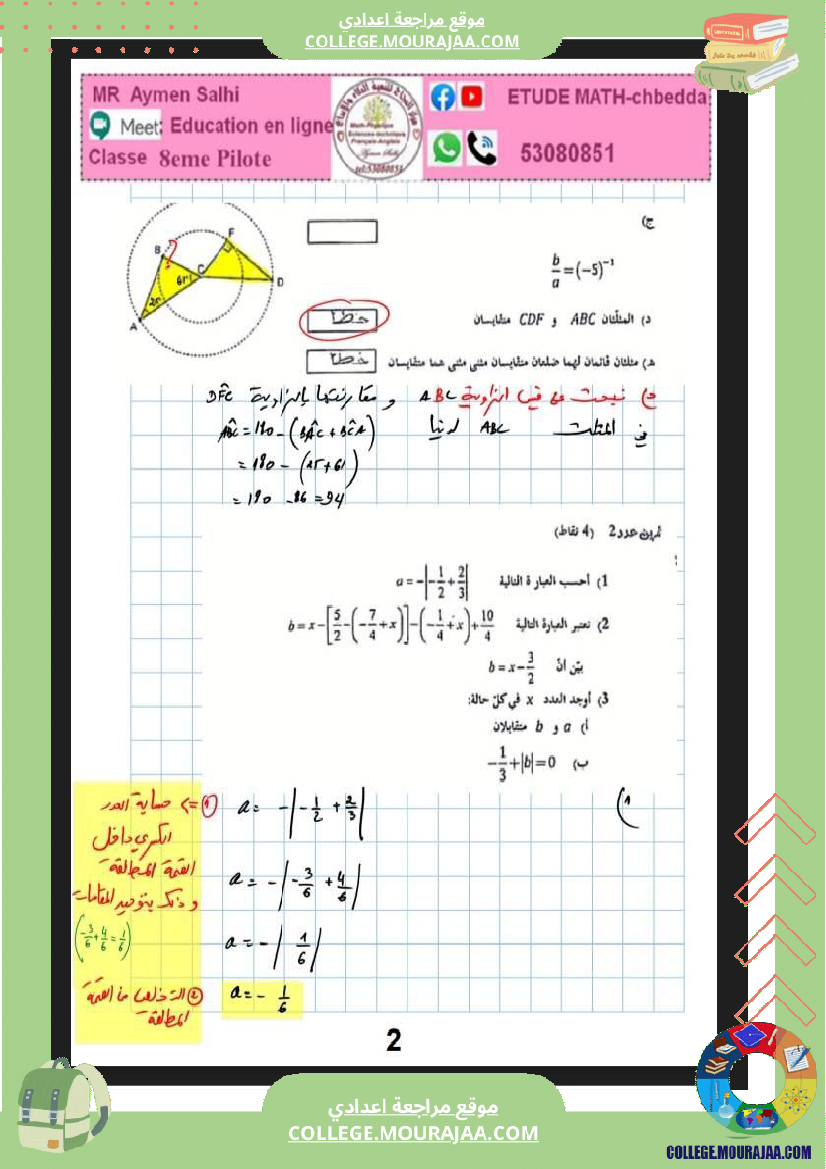 موقع مراجعة اعدادي
COLLEGE.MOURAJAA.COM
MR Aymen Salhi
Meet: Education en ligne
Classe 8eme Pilote
ETUDE MATH-chbedda
53080851
Math-Physique
Sciences-technique
Français-Anglais
tel:53080851
ج)
b/a = (−5)⁻¹
A B C D F 25 61
د) المثلثان ABC و CDF متقايسان خطأ
هـ) مثلثان قائمان لهما ضلعان متقايسان مثنى مثنى هما متقايسان خطأ
د) نبحث عن قيس الزاوية ABC و مقارنتها بالزاوية DFC
في المثلث ABC لدينا
ABC = 180 − (BAC + BCA)
= 180 − (25 + 61)
= 180 − 86 = 94
تمرين عدد 2 (4 نقاط)
1) أحسب العبارة التالية a = −|−1/2 + 2/3|
2) نعتبر العبارة التالية b = x − [5/2 − (−7/4 + x)] − (−1/4 + x) + 10/4
بيّن أنّ b = x − 3/2
3) أوجد العدد x في كلّ حالة:
أ) a و b متقابلان
ب) −1/3 + |b| = 0
1)
a = −|−1/2 + 2/3|
a = −|−3/6 + 4/6|
a = −|1/6|
a = −1/6
① => حساب العدد
الكسري داخل
القيمة المطلقة
و ذلك بتوحيد المقامات
(−3/6 + 4/6 = 1/6)
② التخلص من القيمة
المطلقة
2
موقع مراجعة اعدادي
COLLEGE.MOURAJAA.COM
COLLEGE.MOURAJAA.COM